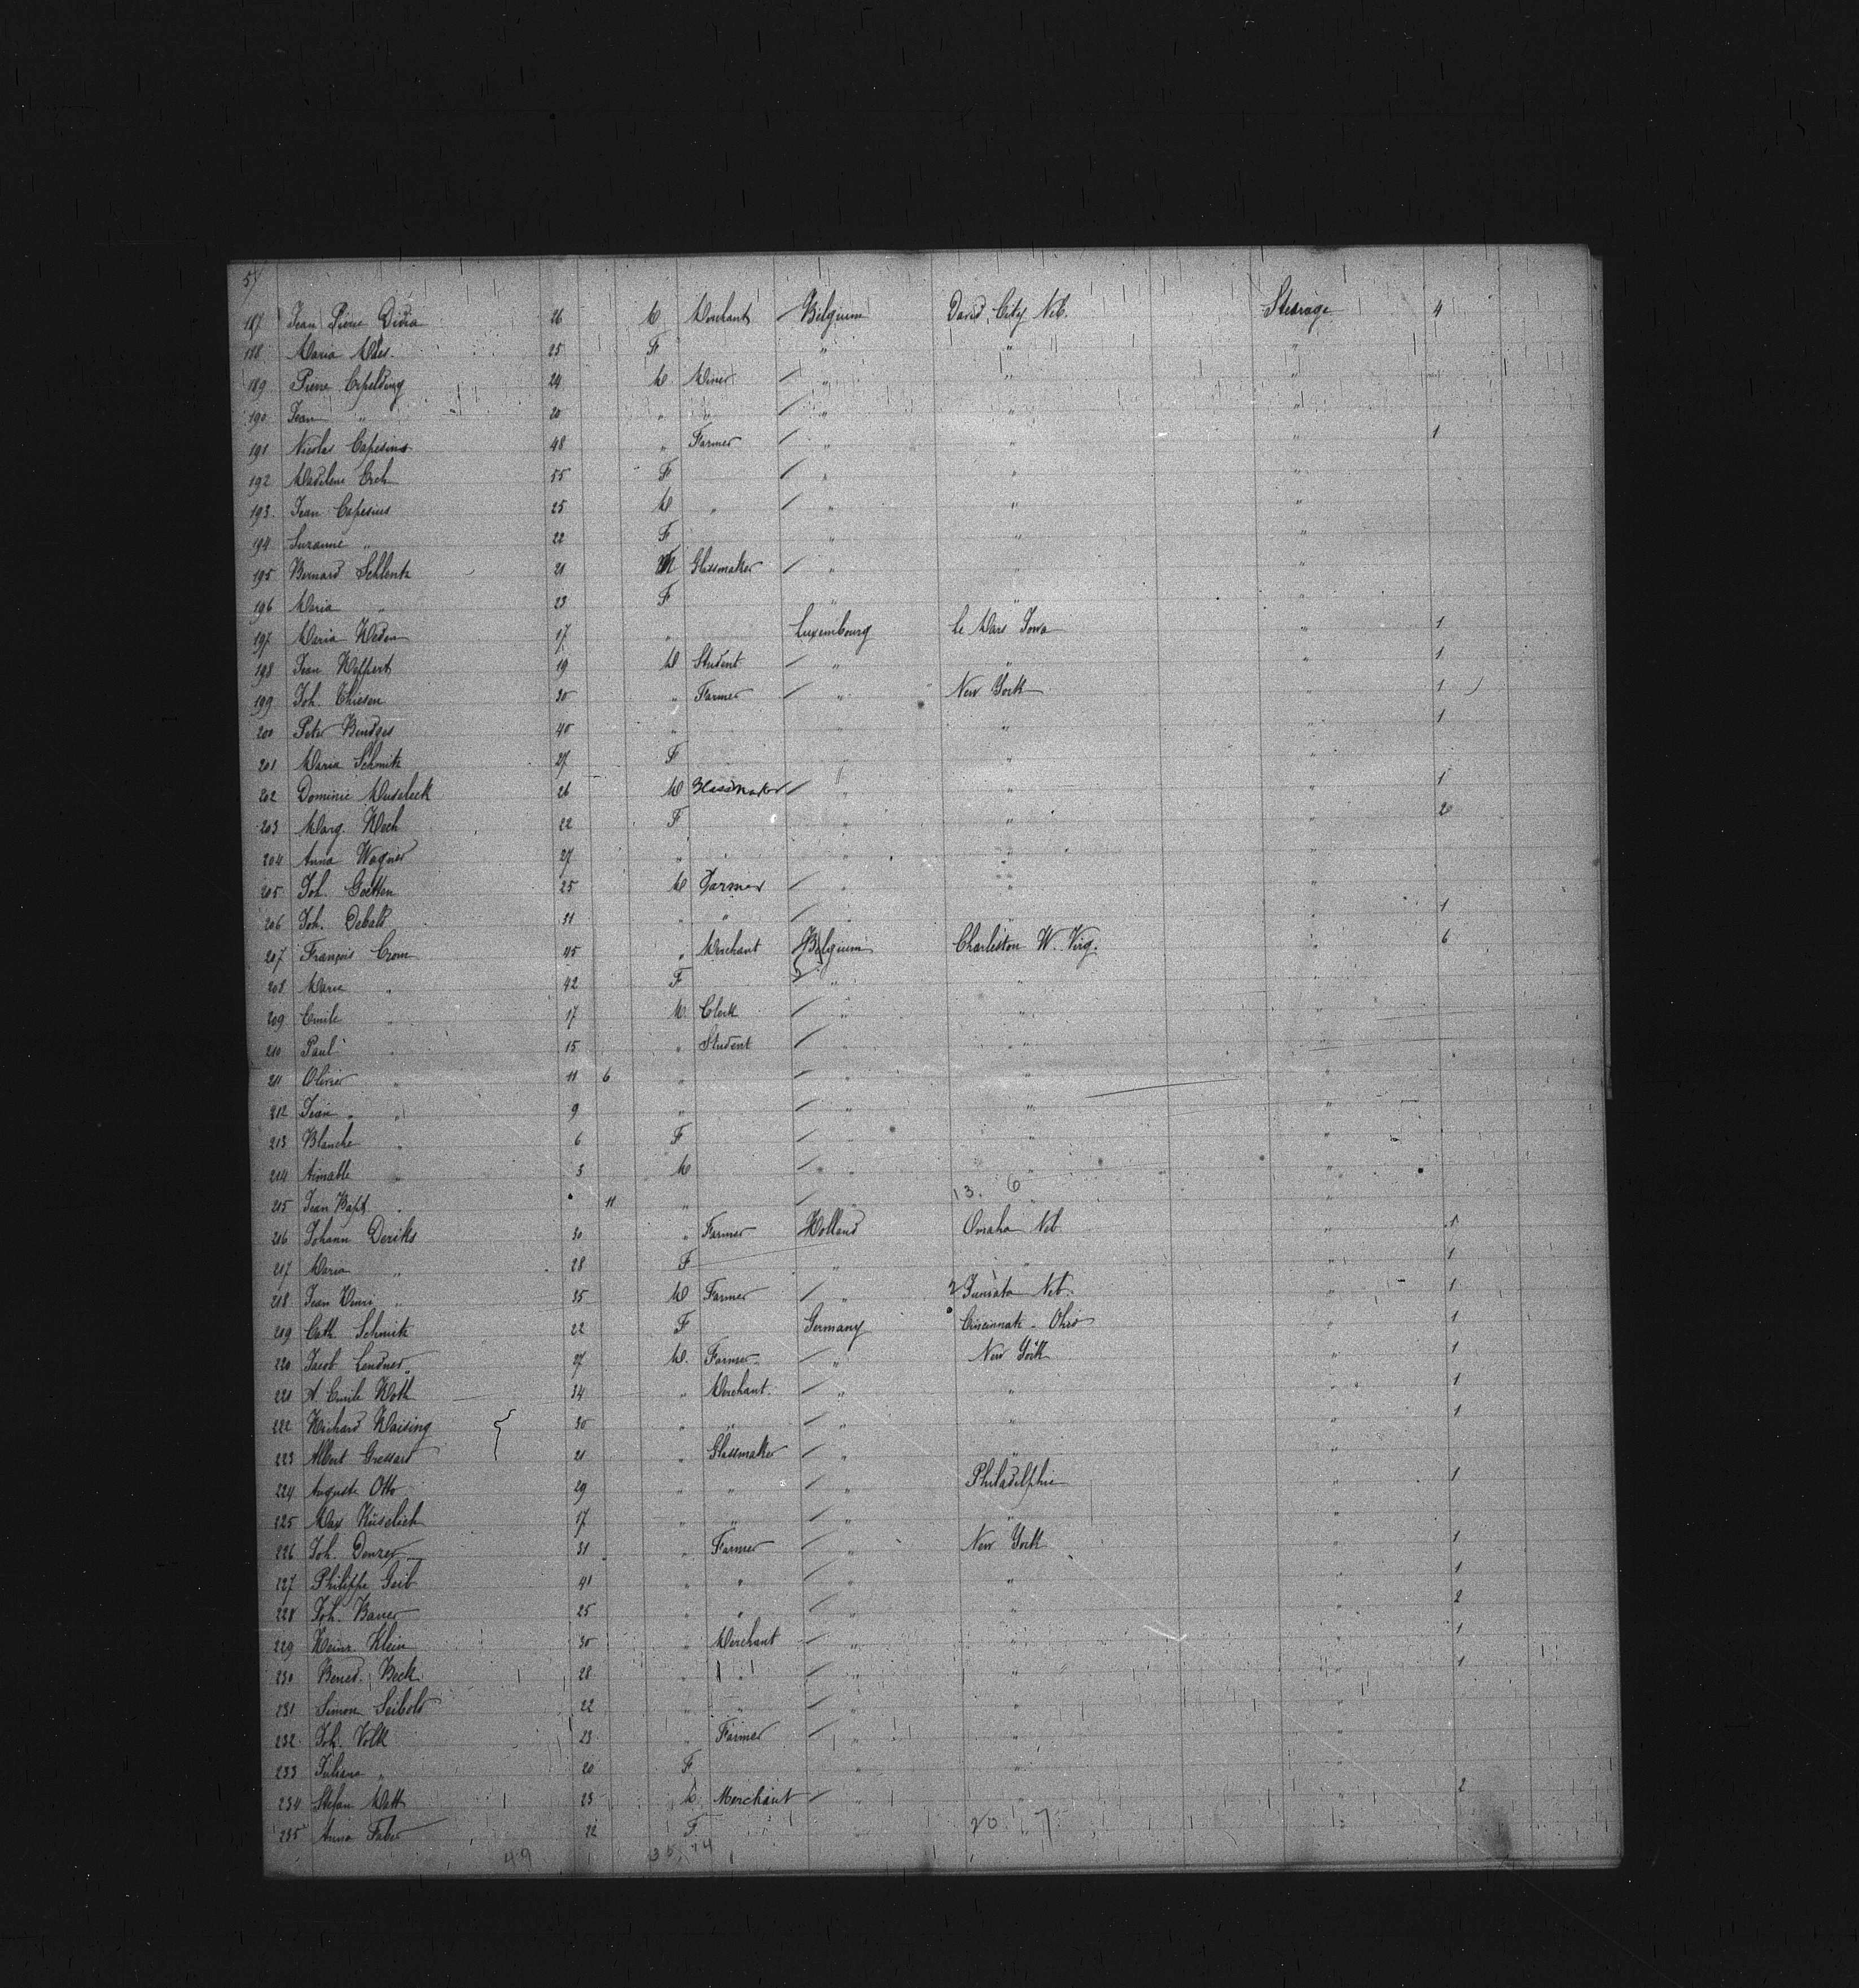 57
187 Jean Pierre Divia 26 M Merchant Belgium David City Neb. Stearage 4
188 Maria Maes. 25 F " " "
189 Pierre Expelding 24 M Miner " " "
190 Jean " 20 " " " " "
191 Nicolas Capesius 48 " Farmer " " " 1
192 Madelene Erch 55 F " " "
193 Jean Capesius 25 M " " " "
194 Suzanne " 22 F " " "
195 Bernard Schlentz 21 M Glassmaker " " "
196 Maria " 23 F " " "
197 Maria 17 " Luxembourg Le Mars Iowa " 1
198 Jean Heppert 19 M Student " " " 1
199 Joh. Thiesen 30 " Farmer " New York " 1
200 Peter Bindges 40 " " " " 1
201 Maria Schmitz 27 F " " "
202 Dominic 26 M Glassmaker " " " 1
203 Marg. Hoch 22 F " " " 20
204 Anna Wagner 27 " " " "
205 Joh. Goetten 25 M Farmer " " "
206 Joh. 31 " " " " " 1
207 François Crom 45 " Merchant Belgium Charleston W. Virg. " 6
208 Marie " 42 F " " "
209 Emile " 17 M Clerk " " "
210 Paul " 15 " Student " " "
211 Olivier " 11 6 " " " "
212 Jean " " 9 " " " "
213 Blanche " 6 F " " "
214 Aimable " 3 M " " "
215 Jean Bapt. " 11 " " " "
13. 6
216 Johann Deriks 30 " Farmer Holland Omaha Neb " 5
217 Maria " 28 F " " " 1
218 Jean Henri " 35 M Farmer " 2 Juniata Neb. " 1
219 Cath. Schmitz 22 F Germany Cincinnati - Ohio " 1
220 Jacob Lendner 27 M. Farmer " New York " 1
221 A. Emile Roth 34 " Merchant " " " 1
222 Richard Haising 30 " " " " " 1
223 Albert Gressard 21 " Glassmaker " " "
224 Auguste Otto 29 " " " Philadelphia " 1
225 Max 17 " " " " "
226 Joh. Denzer 31 " Farmer " New York 1
227 Philippe Geib 41 " " " " " 1
228 Joh. Bauer 25 " " " " " 2
229 Heinr. Klein 30 " Merchant " " " 1
230 Bened. Beck 28 " " " " " 1
231 Simon Seibold 22 " " " " "
232 Joh. Volk 23 " Farmer " " "
233 Juliana " 20 F " " "
234 Stefan Matt 23 M Merchant " " " 2
235 Anna Faber 22 F " "
20. 7
49 35, 14